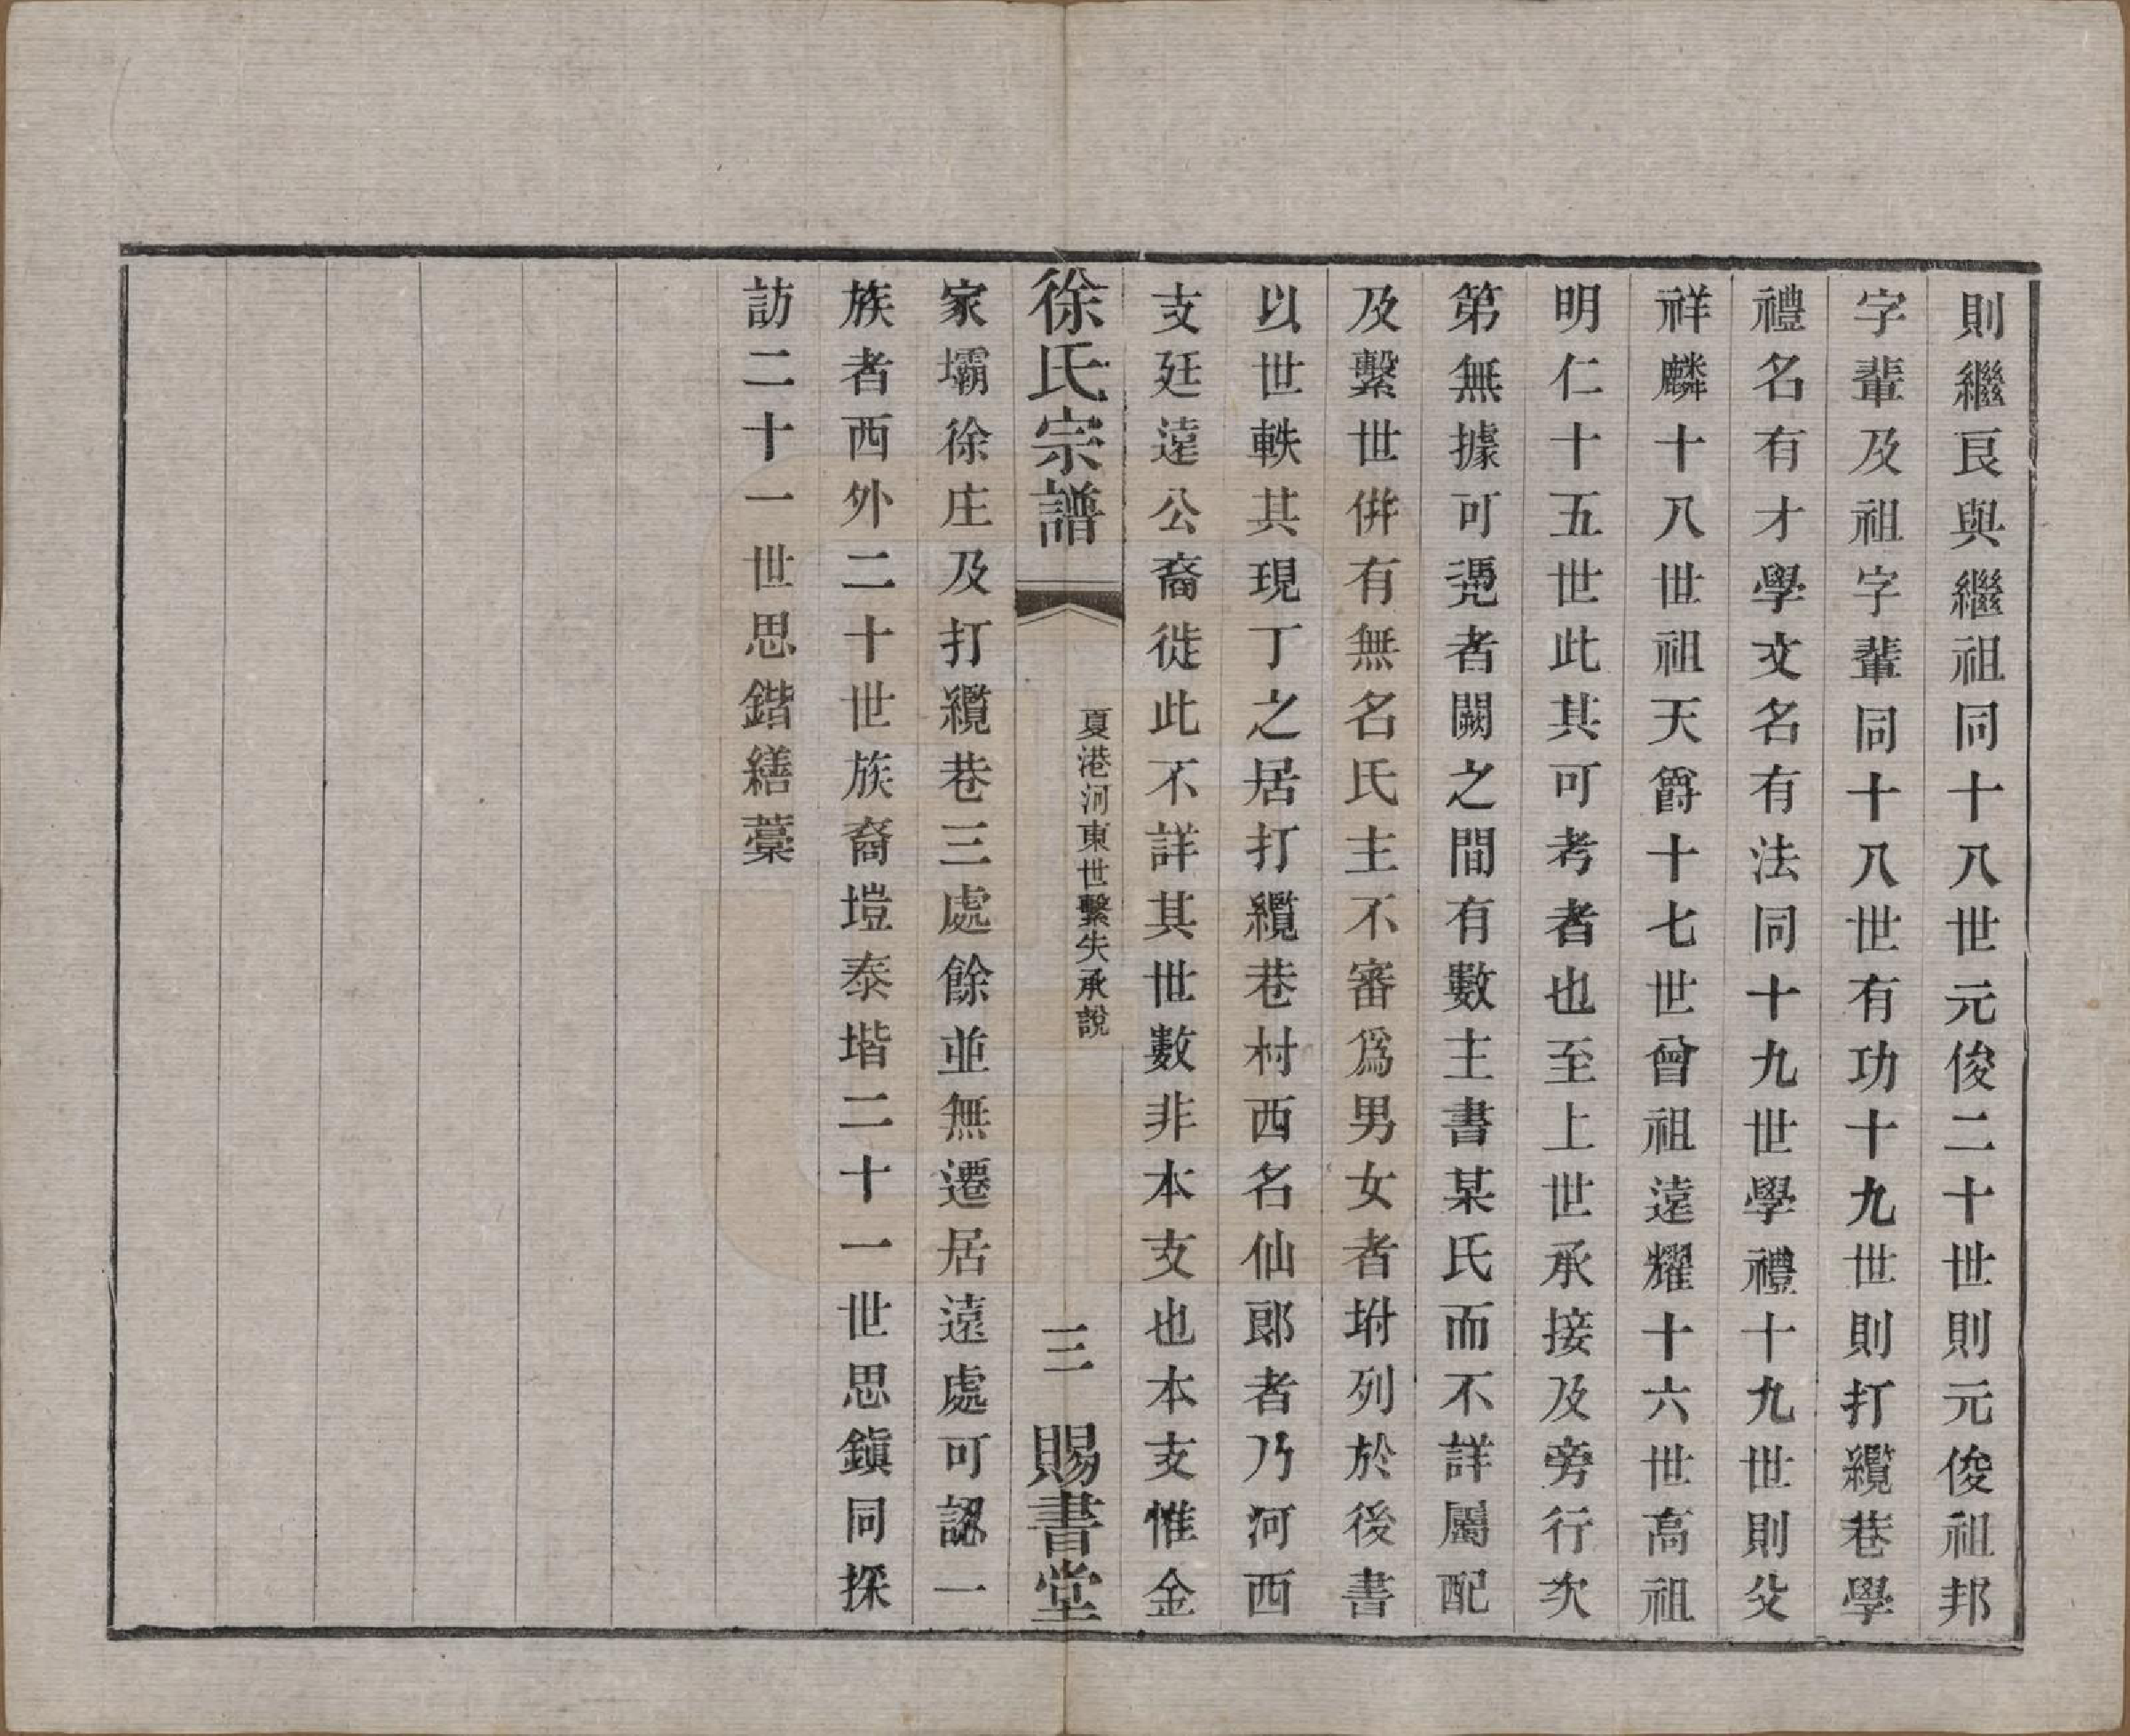 則繼艮與繼祖同十八世元俊二十世則元俊祖邦
字輩及祖字輩同十八世有功十九世則打纜巷學
禮名有才學文名有法同十九世學禮十九世則父
祥麟十八世祖天爵十七世曾祖遠耀十六世高祖
明仁十五世此其可考者也至上世承接及旁行次
第無據可凴者闕之間有數主書某氏而不詳屬配
及繫世併有無名氏主不審爲男女者坿列於後書
以世軼其現丁之居打纜巷村西名仙郎者乃河西
支廷遠公裔徙此不詳其世數非本支也本支惟金
徐氏宗譜
夏港河東世繫失承說
三
賜書堂
家壩徐庄及打纜巷三處餘並無遷居遠處可認一
族者西外二十世族裔塏泰堦二十一世思鎭同採
訪二十一世思鍇繕藁